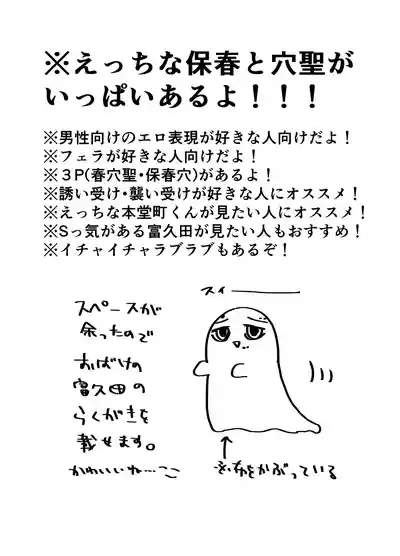 ※えっちな保春と穴聖が
いっぱいあるよ！！！
※男性向けのエロ表現が好きな人向けだよ！
※フェラが好きな人向けだよ！
※３P(春穴聖・保春穴)があるよ！
※誘い受け・襲い受けが好きな人にオススメ！
※えっちな本堂町くんが見たい人にオススメ！
※Sっ気がある富久田が見たい人もおすすめ！
※イチャイチャラブラブもあるぞ！
スペースが
余ったので
おばけの
富久田の
らくがきを
載せます。
かわいいね…ここ
スイ―
布をかぶっている